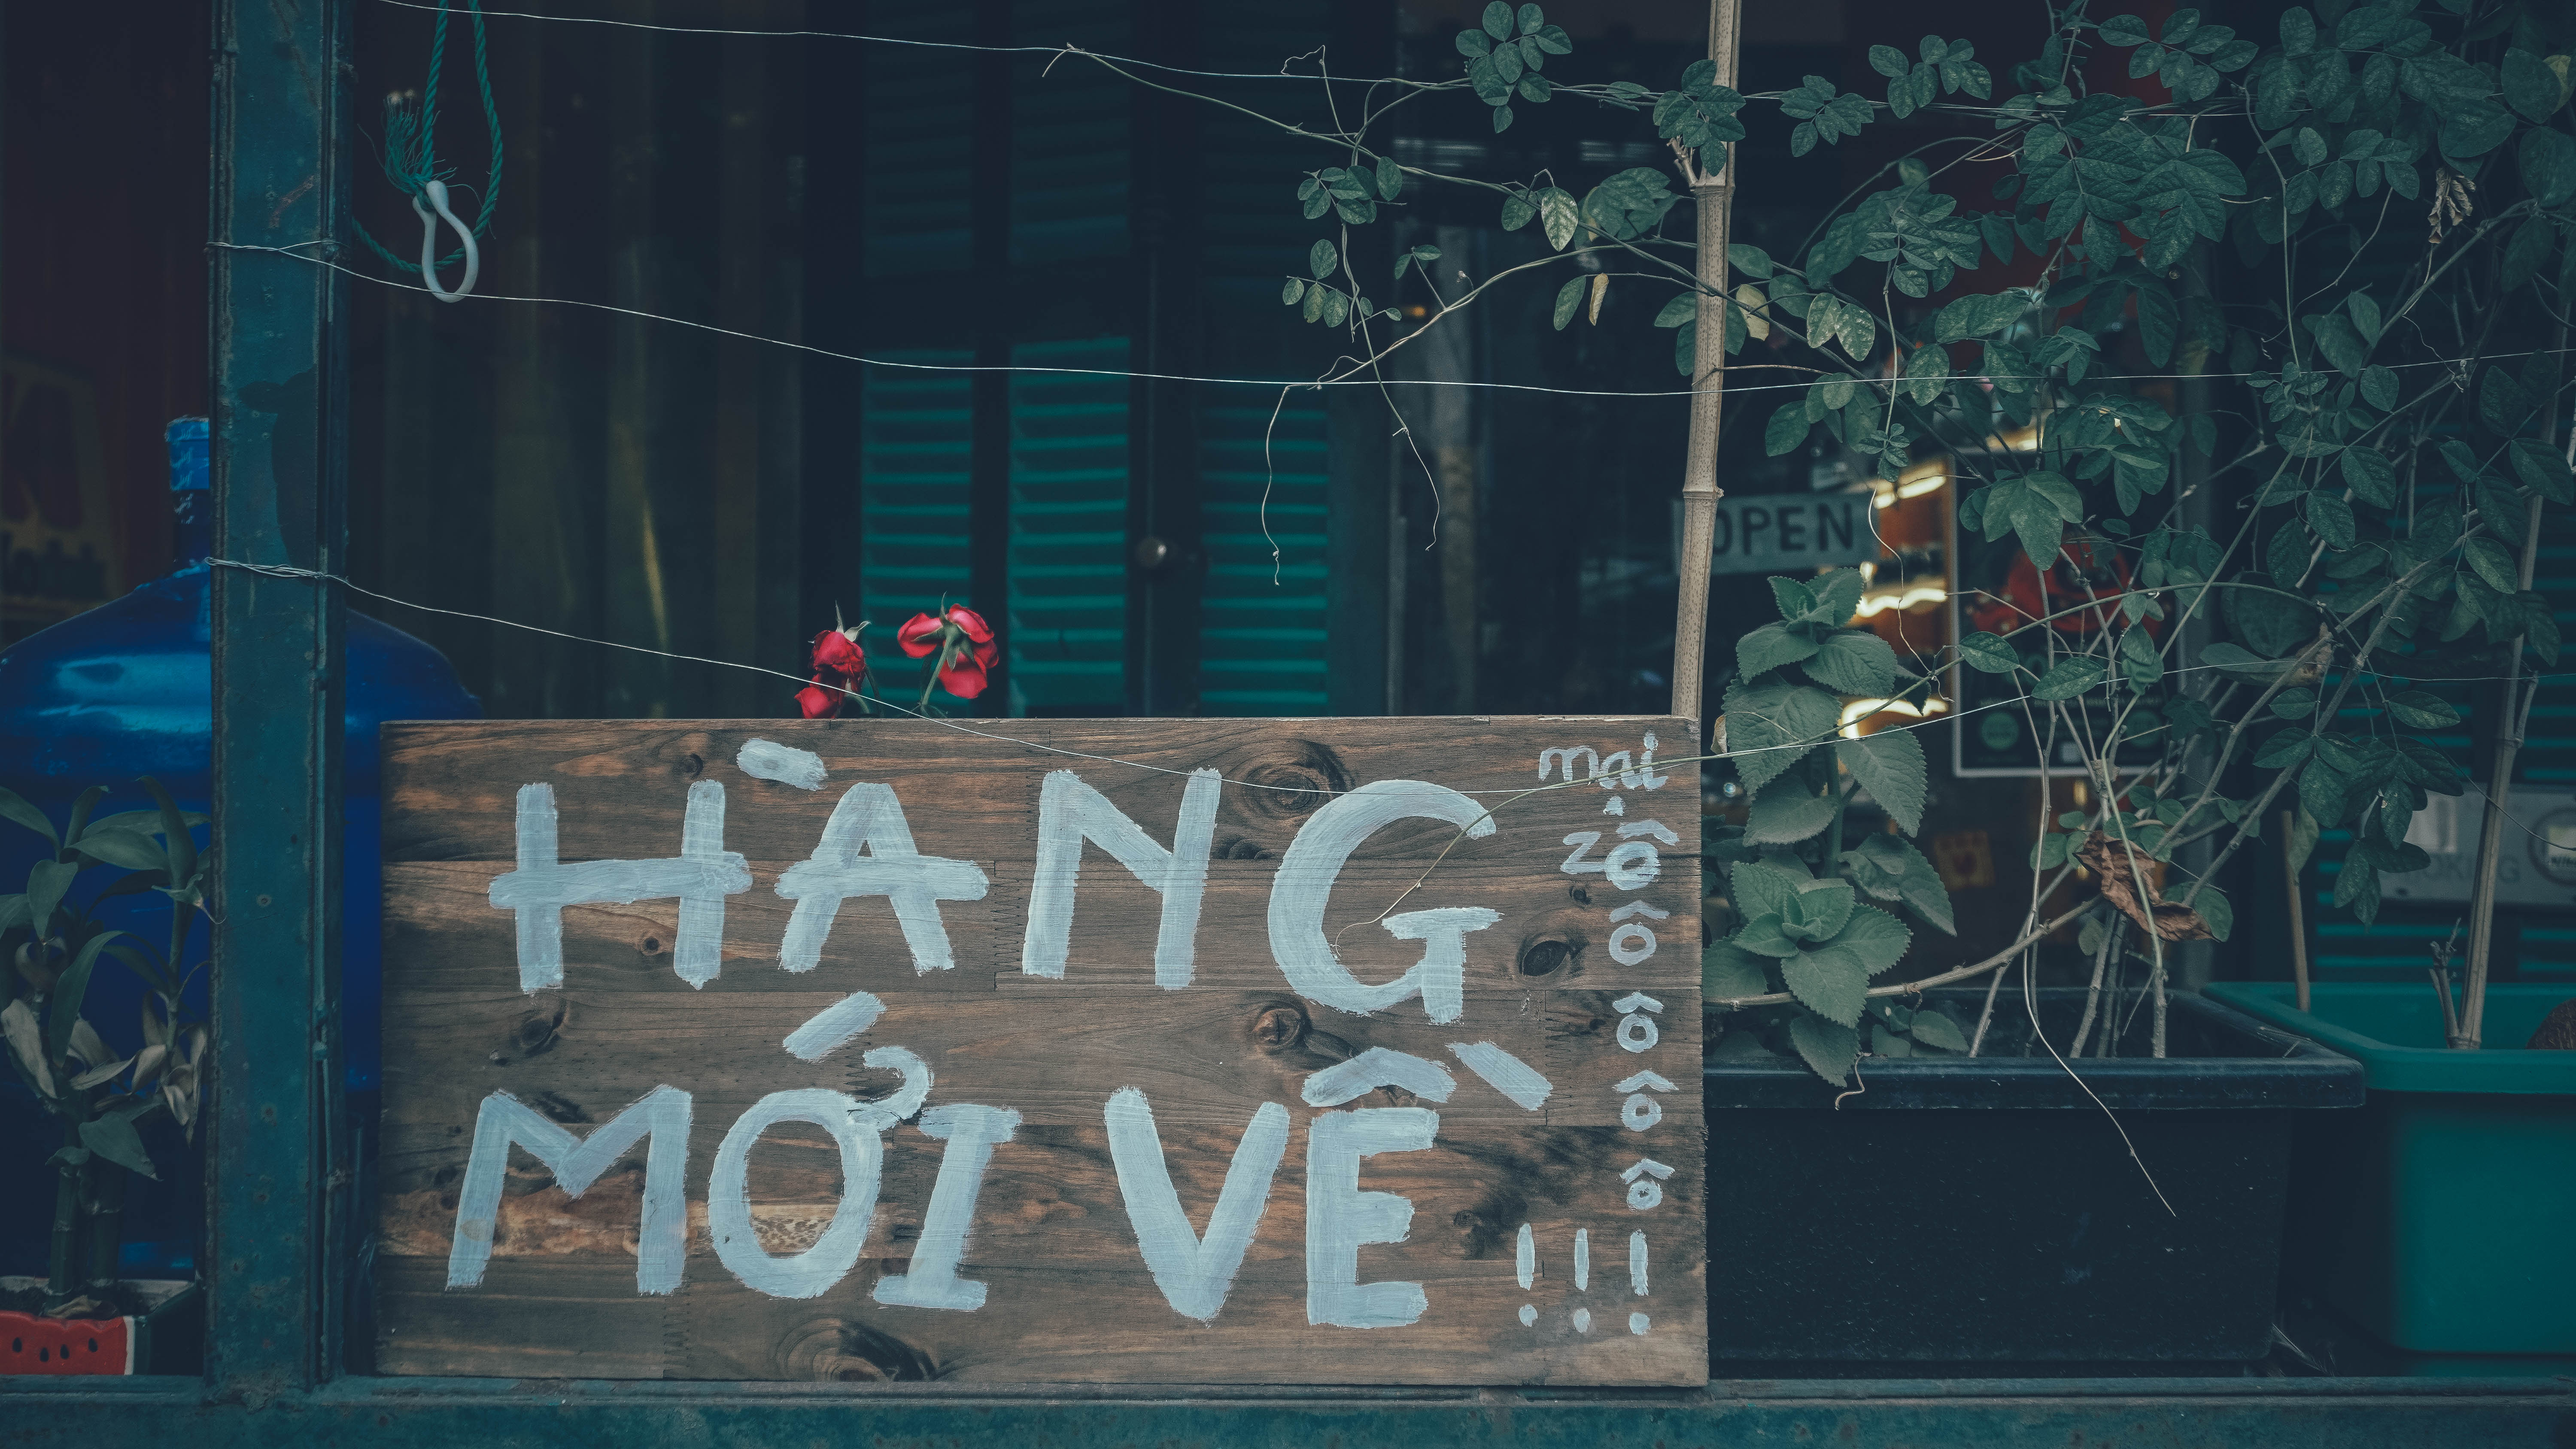 OPEN
HÀNG
MỚI VỀ
mại
zô
ô
ô
ô
ô
!!!